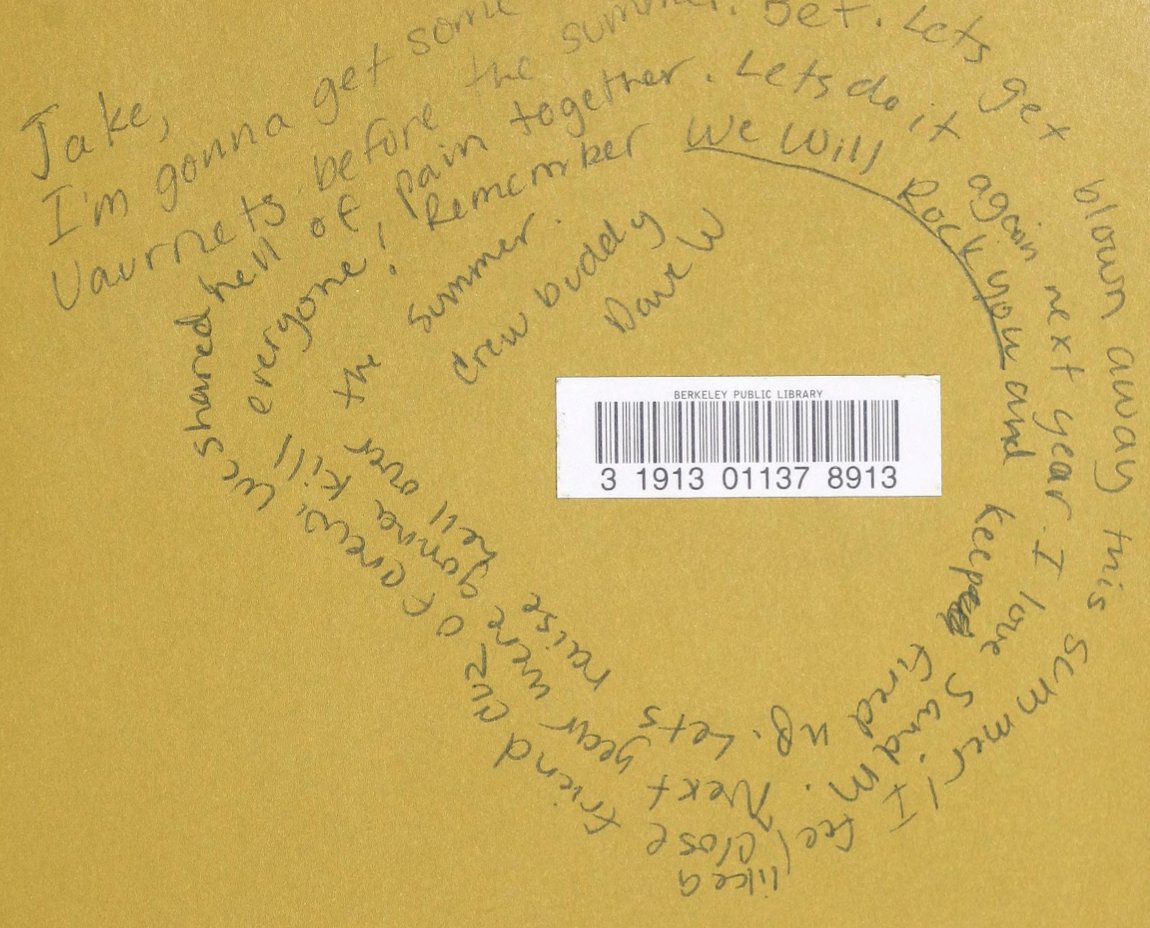 Jake,
I'm gonna get some
Vaurnets before the summer. Bet. Lets get blown away this summer! I feel like a close friend cuz of crew, we shared hell of pain together. Lets do it again next year. I love SandM. Next year were gonna kill everyone! Remember We Will Rock you and keep fired up. Lets raise hell over the summer.
crew buddy
Dave W
BERKELEY PUBLIC LIBRARY
3 1913 01137 8913